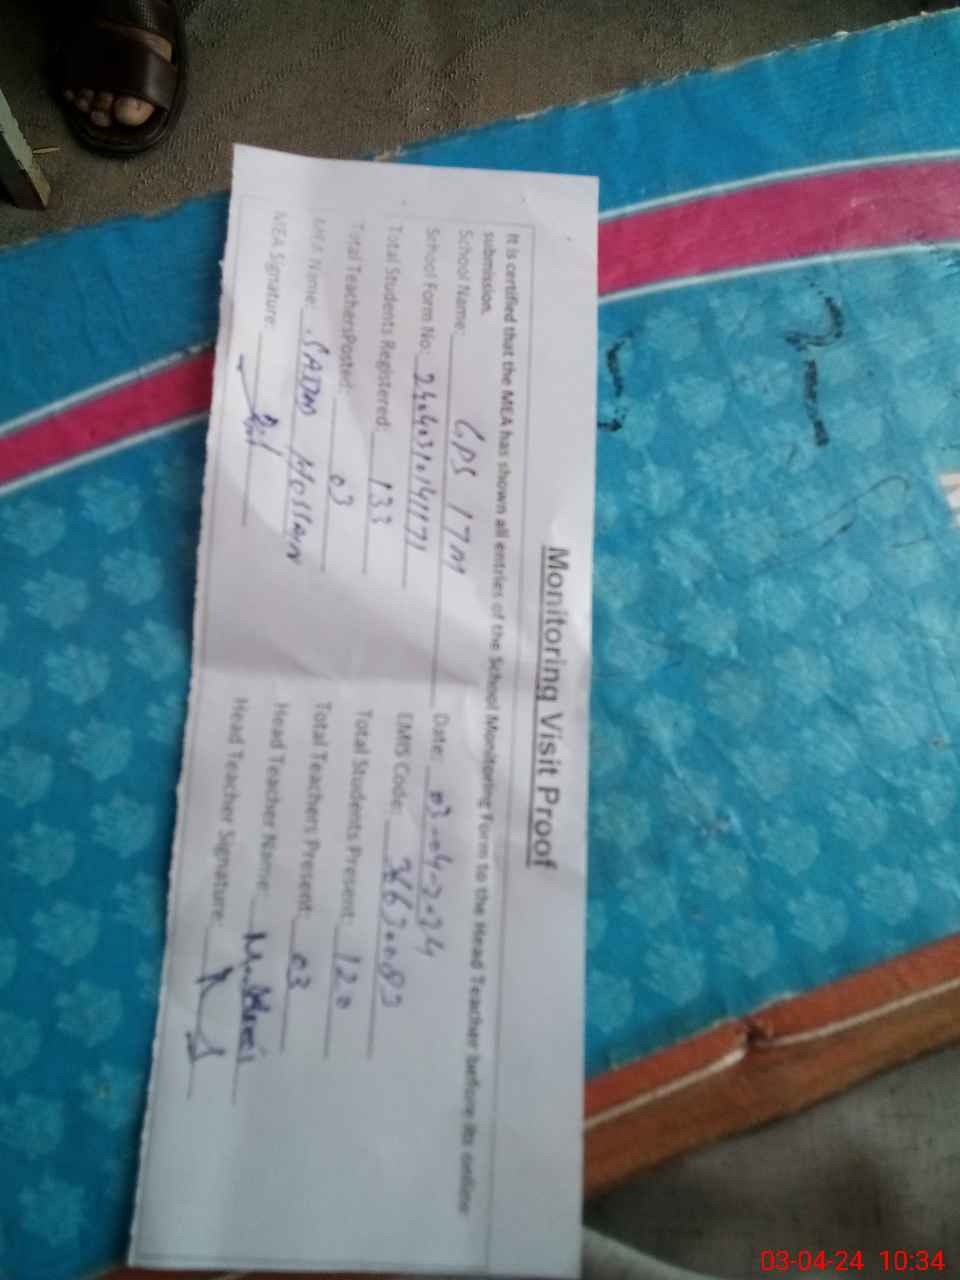 Monitoring Visit Proof
It is certified that the MEA has shown all entries of the School Monitoring Form to the Head Teacher before its online
submission.
School Name: GPS 17 M Date: 03-04-2024
School Form No: EMIS Code:
Total Students Registered: 133 Total Students Present: 120
Total TeachersPosted: 03 Total Teachers Present: 03
MEA Name: SADAM HUSSAIN Head Teacher Name:
MEA Signature: Head Teacher Signature:
03-04-24 10:34